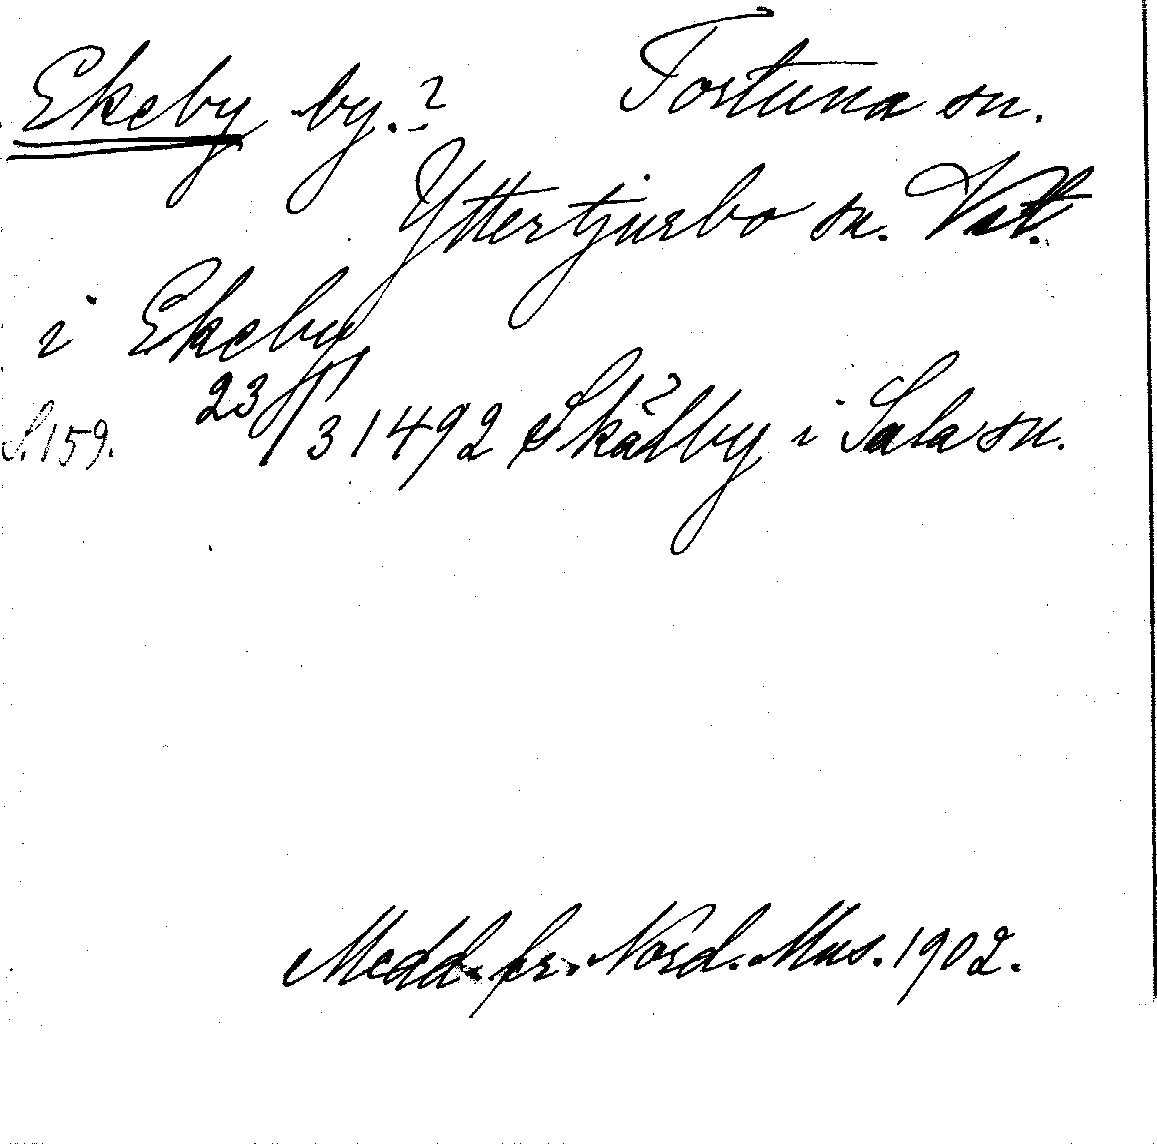 Ekeby by.? Tortuna sn.
Yttertjurbo sn. Vstl.
i Ekeby
S. 159. 23/3 1492 Skälby i Sala sn.
Medd. fr. Nord. Mus. 1902.